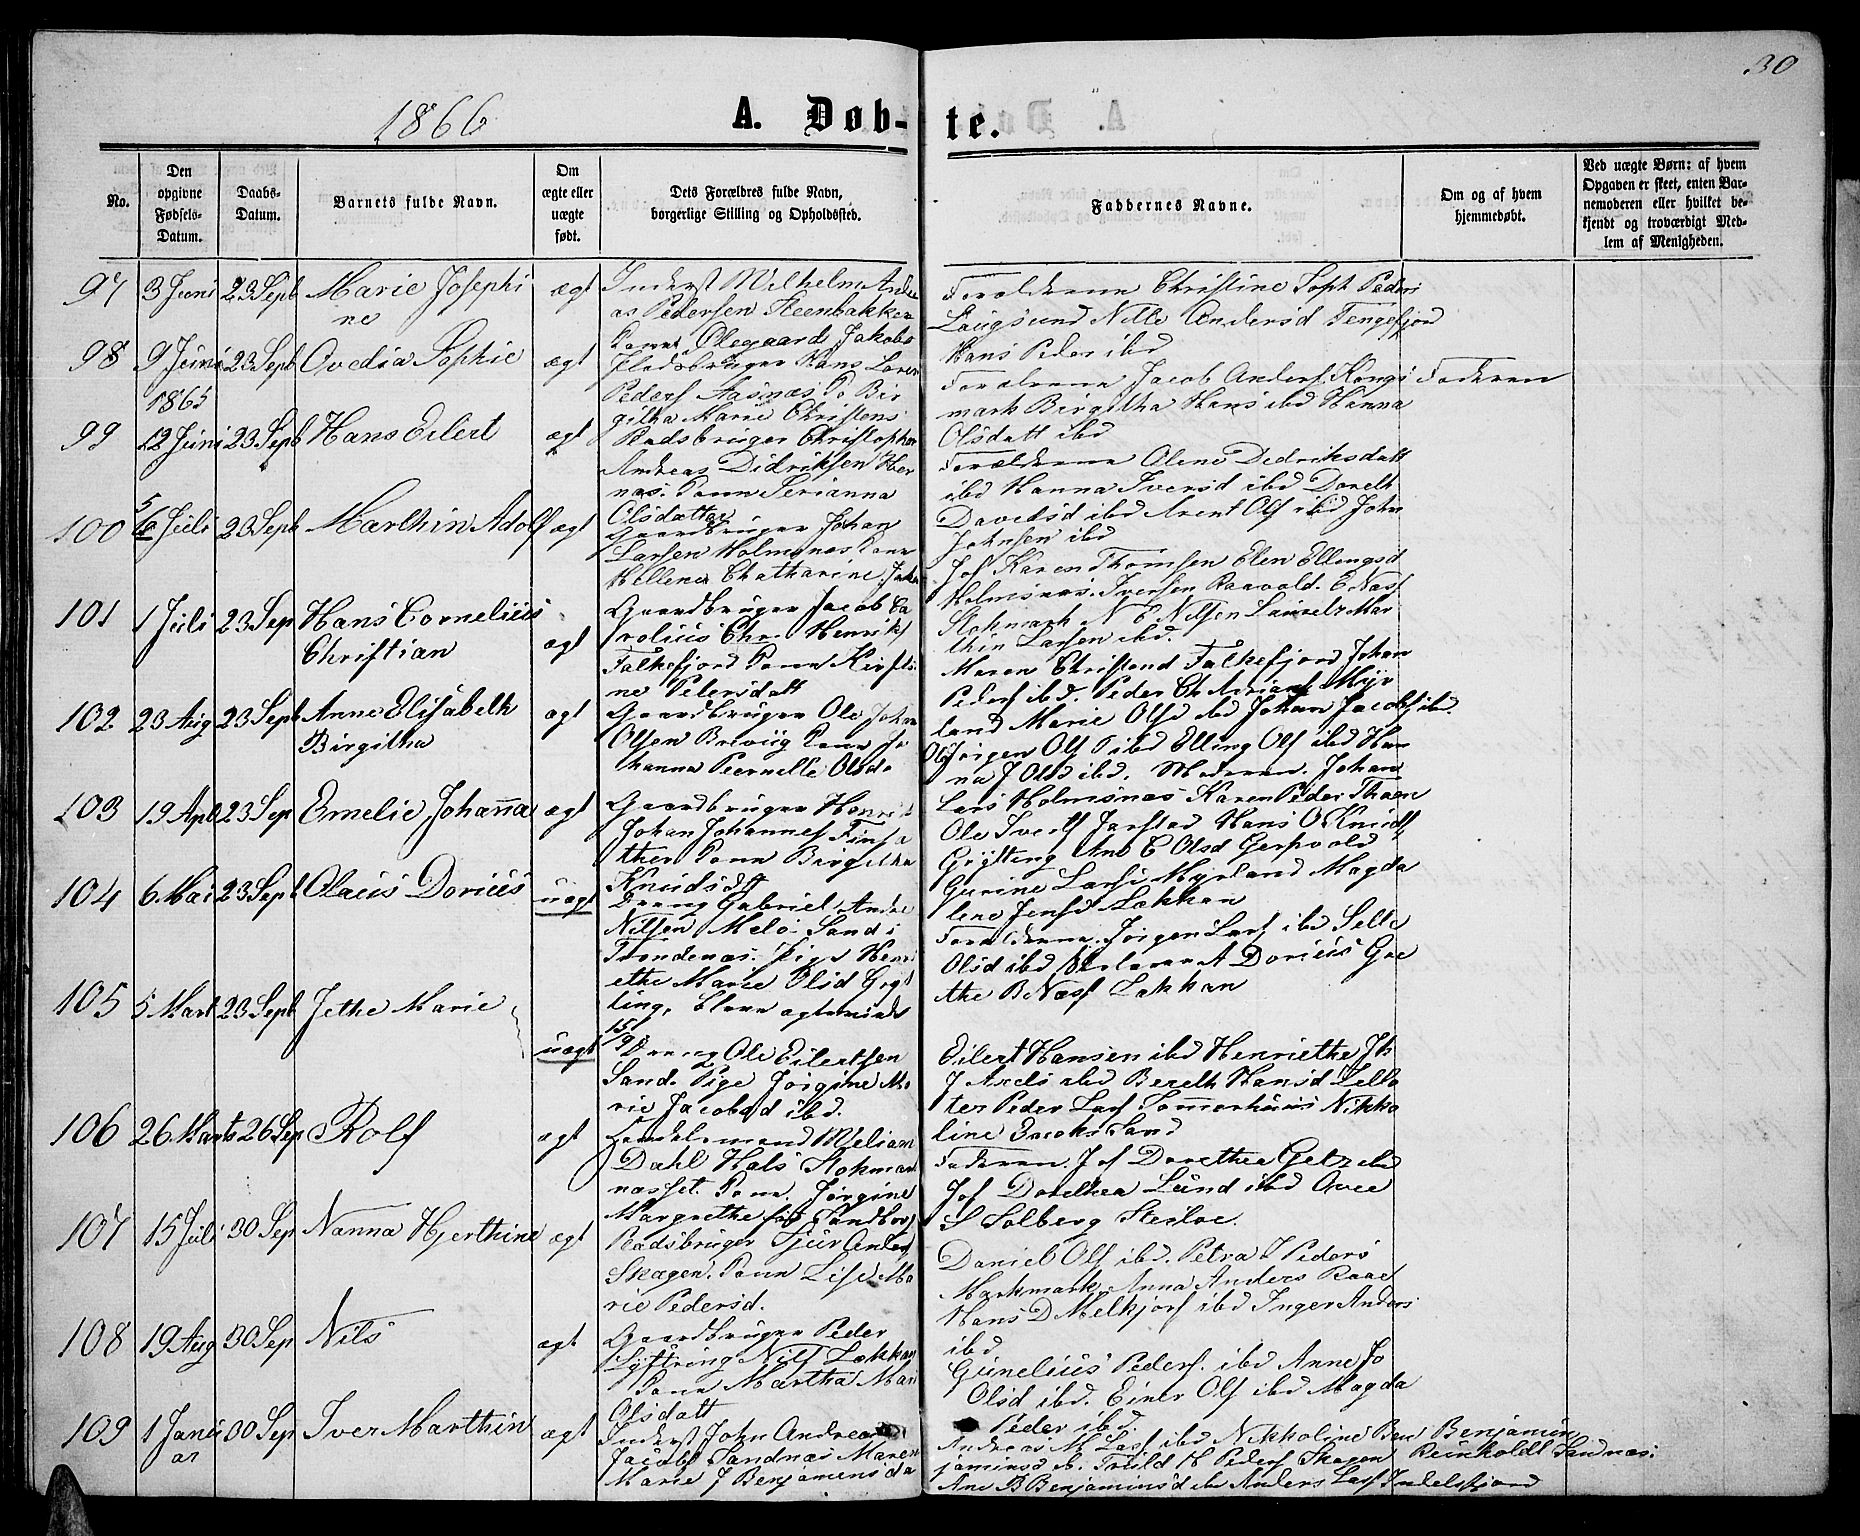 30
1866
A. Døb-
te.
No.
Den opgivne Fødsels-Datum.
Daabs-Datum.
Barnets fulde Navn.
Om ægte eller uægte født.
Dets Forældres fulde Navn, borgerlige Stilling og Opholdssted.
Faddernes Navne.
Om og af hvem hjemmedøbt.
Ved uægte Børn: af hvem Opgaven er skeet, enten Barnemoderen eller hvilket bekjendt og troværdigt Medlem af Menigheden.
97 3 Juni 23 Sept Marie Josephi
ne
ægt
Inderst Wilhelm Andre
as Pedersen Steenbakken
Kone Olegaard Jakobs
Forældrene Christine Soph Peders
Laugsund Nille Andersd Tengefjord
Hans Peder ibd
98 9 Juni 23 Sept Ovedia Sophie ægt
1865
Pladsbruger Hans Loren
Peders Aasnæs K Bir
githa Marie Christens
Forældrene Jacob Anders Kongs
mark Birgitha Hans ibd Hanna
Olsdatt ibd
Faderen
99 12 Juni 23 Sept Hans Eilert ægt
Pladsbruger Christopher
Andreas Didriksen Her
næs. Kone Serianna
Olsdatter
Forældrene Olene Dedriksdatt
ibd Hanna Iversd ibd Doreth
Davidsd ibd Arent Ols ibd John
Johnsen ibd
100 5/6 Juli 23 Sept Marthin Adolf ægt
Gaardbruger Johan
Larsen Holmsnæs Kone
Hellene Chatharine Joh
Jof Karen Thomsen Elen Ellingsd
Holmsnæs. Iversen Raavold. E Næss
Stokmark N E Nilsen Lauretz Mar
thin Larsen ibd.
101 1 Juli 23 Sep Hans Cornelius
Christian
ægt
Gaardbruger Jacob Ca
rolius Chr. Henriks
Falkefjord Kone Kirsti
ne Petersdatt
Maren Christend Falkefjord Johan
Peders ibd. Peder Ch Adrians Myr
land Marie Olsd ibd Johan Jacobs ibd.
102 23 Aug 23 Sept Anne Elisabeth
Birgitha
ægt
Gaardbruger Ole Johan
Olsen Breviig Kone Jo
hanna Pernelle Olsd.
Jørgen Ols ibd Elling Ols ibd Han
na J Olsd ibd. Moderen. Johan
Lars Holmsnæs Karen Peder Thoen
103 19 Apl 23 Sep Emelie Johanna ægt
Gaardbruger Henrik
Johan Johannes Finsæ
ther Kone Birgitha
Knudsd
Ole Ivers Jarstad Hans O Knuds
Grytting Ane C Olsd Gerpvold
Gurine Lars Myrland Magda
lene Jensd Løkkan
104 6 Mai 23 Sept Olaus Dorius uægt
Dreng Gabriel Andre
Nilsen Melø Sand i
Trondenæs. Pige Henri
ethe Marie Olsd Gryt
ting,
Forældrene. Jørgen Lars ibd Sille
Olsd ibd A Dorius Gre
the B Næss Løkkan
105 5 Mart 23 Sept Jethe Marie uægt
Dreng Ole Eilertsen
Sand. Pige Jørgine Ma
rie Jacobsd ibd.
Eilert Hansen ibd Henriethe Joh
J Axels ibd Bereth Hansd Lille
ter Peder Lars Sommerhuus Nikko
line Jacobs Sand
106 26 Marts 26 Sep Rolf ægt
Handelsmand William
Dahl Hals Stokmark
næsset. Kone. Jørgine
Margrethe født Sandberg
Faderen. Jof Dorethea Getz ibd
Jof Dorethea Lund ibd Ovee
S Solberg Steiloe.
107 15 Juli 30 Sep Nanna Hjerthine ægt
Pladsbruger Sjur Anders
Skagen. Kone Lise Ma
rie Pedersd.
Daniel Ols ibd. Petra J Peders
Markmark. Anna Anders Raae
Hans D Melkjors ibd Inger Anders
ibd
108 19 Aug 30 Sep Nils ægt
Gaardbruger Peder
Lyftring Nils Løkkan
Kone Martha Mari
Olsdatt
Gunelius Peders. ibd Anne Jo
Olsd ibd. Einer Ols ibd Magda
Peder ibd.
109 1 Janu
ar
30 Sep Iver Marthin ægt
Inderst John Andreas
Jacobs Sandnæs Maren
Marie J Benjaminsda
Andreas M Lars ibd Nikkoline Ben Benjamin
jaminsd ib. Truld K Peders Skagen Reinholdt Sandnæs:
Ane B Benjaminsd ibd Anders Lars Indelsfjord